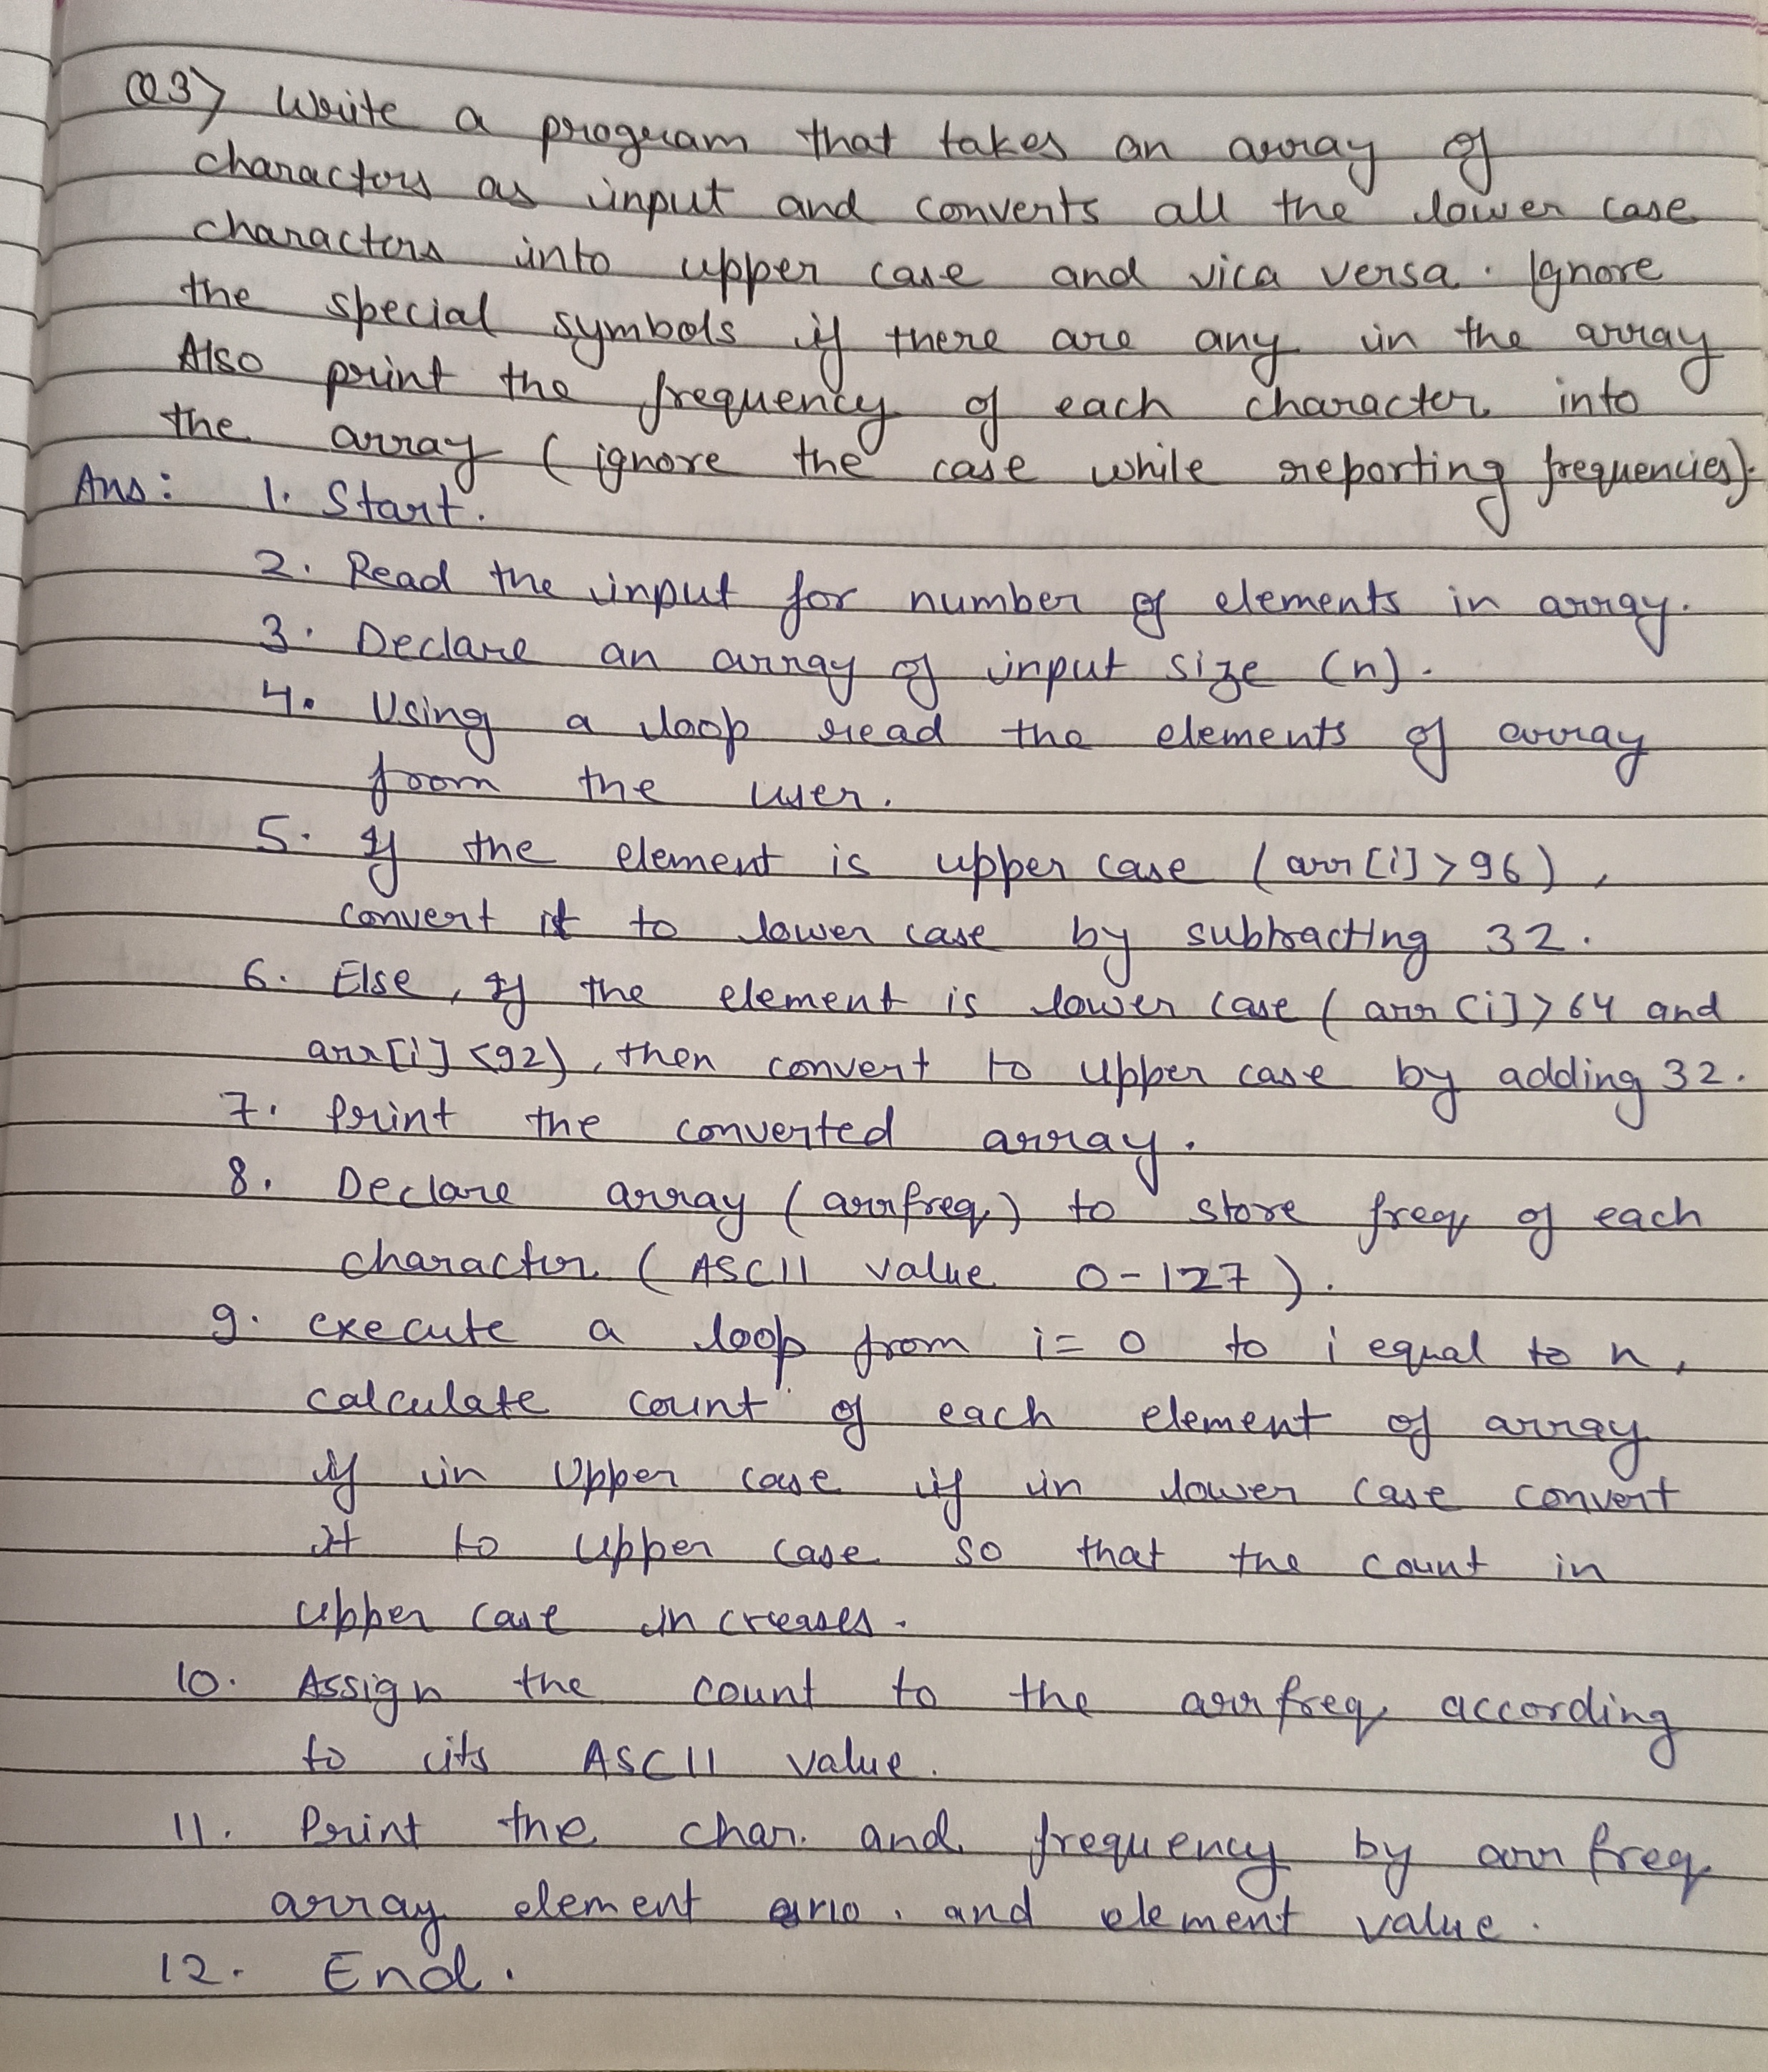 Q3> Write a program that takes an array of
charactors as input and converts all the lower case
characters into upper case and vica versa. Ignore
the special symbols if there are any in the array
Also print the frequency of each character into
the array (ignore the case while reporting frequencies).
Ans: 1. Start.
2. Read the input for number of elements in array.
3. Declare an array of input size (n).
4. Using a loop read the elements of array
from the user.
5. If the element is upper case (arr[i]>96),
convert it to lower case by subtracting 32.
6. Else, if the element is lower case (arr[i]>64 and
arr[i]<92), then convert to upper case by adding 32.
7. Print the converted array.
8. Declare array (arrfreq) to store freq of each
character (ASCII value 0-127).
9. execute a loop from i=0 to i equal to n,
calculate count of each element of array
if in Upper case if in lower case convert
it to upper case so that the count in
upper case increases.
10. Assign the count to the arrfreq according
to its ASCII value.
11. Print the char. and frequency by arrfreq
array element no. and element value.
12. End.